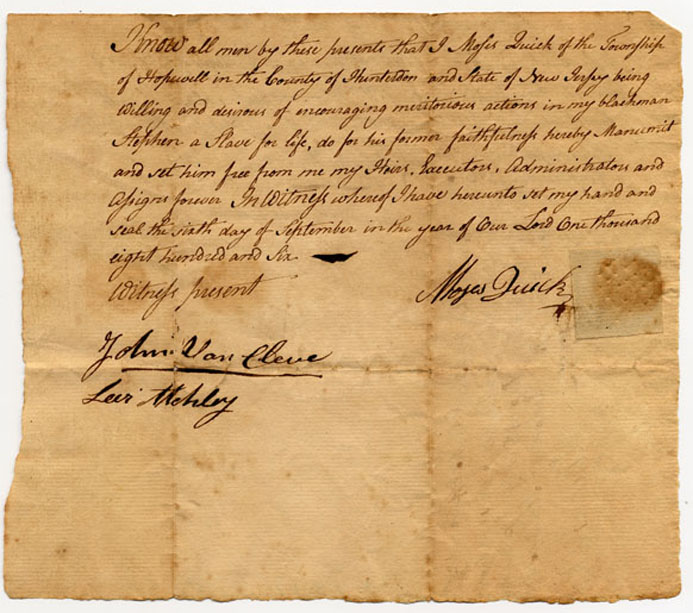 Know all men by these presents that I Moses Quick of the Township
of Hopewell in the County of Hunterdon and State of New Jersey being
Willing and desirous of encouraging meritorious actions in my blackman
Stephen a Slave for life, do for his former faithfulness hereby Manumit
and set him free from me my Heirs, Executors, Administrators and
Assigns forever In Witness whereof I have hereunto set my hand and
seal the sixth day of September in the year of Our Lord One thousand
eight hundred and six
Witness present
Moses Quick
John Van Cleve
Levi Atchley